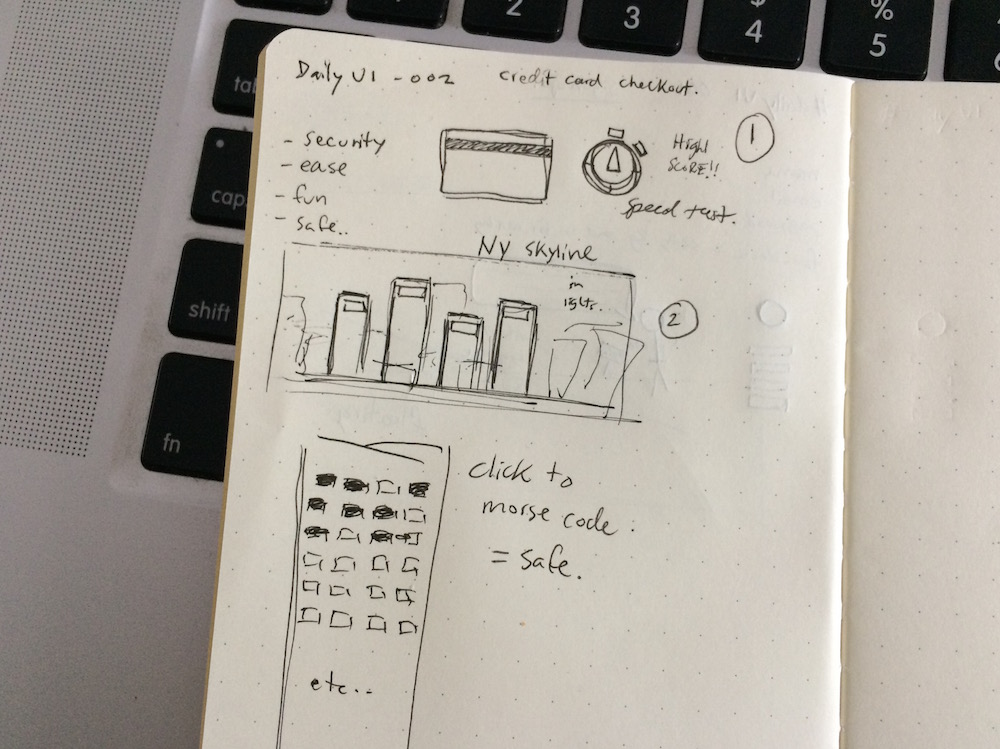 2
3
$
4
%
5
6
tab
caps
shift
fn
Daily UI - 002 credit card checkout.
- security
- ease
- fun
- safe..
High
SCORE!!
1
Speed test.
NY skyline
in
lights
2
click to
morse code.
= safe.
etc..